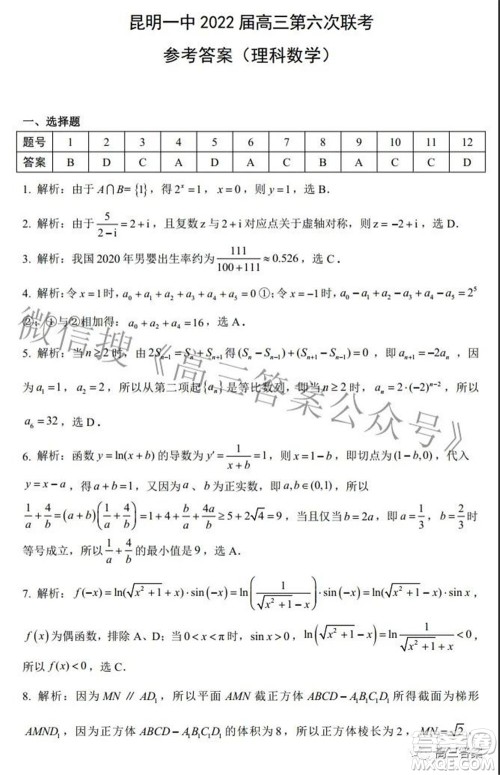 昆明一中 2022 届高三第六次联考
参考答案（理科数学）
一、选择题
题号 1 2 3 4 5 6 7 8 9 10 11 12
答案 B D C A D A C A D C A D
1. 解析：由于 A∩B={1}，得 2^x=1，x=0，则 y=1，选 B．
2. 解析：由于 5/(2-i)=2+i，且复数 z 与 2+i 对应点关于虚轴对称，则 z=-2+i，选 D．
3. 解析：我国 2020 年男婴出生率约为 111/(100+111)≈0.526，选 C．
4. 解析：令 x=1 时，a₀+a₁+a₂+a₃+a₄+a₅=0 ①；令 x=-1 时，a₀-a₁+a₂-a₃+a₄-a₅=2^5
②；①与②相加得：a₀+a₂+a₄=16，选 A．
5. 解析：当 n≥2 时，由 2S_{n-1}=S_n+S_{n+1} 得 (S_n-S_{n-1})+(S_{n+1}-S_{n-1})=0，即 a_{n+1}=-2a_n，因
为 a₁=1，a₂=2，所以从第二项起{a_n}是等比数列，即当 n≥2 时，a_n=2·(-2)^{n-2}，所以
a₆=32，选 D．
6. 解析：函数 y=ln(x+b) 的导数为 y′=1/(x+b)=1，则 x=1-b，即切点为 (1-b,0)，代入
y=x-a，得 a+b=1，又因为 a、b 为正实数，即 a,b∈(0,1)，所以
1/a+4/b=(a+b)(1/a+4/b)=1+4+b/a+4a/b≥5+2√4=9，当且仅当 b/a=4a/b，即 a=1/3，b=2/3 时
等号成立，所以 1/a+4/b 的最小值是 9，选 A．
7. 解析：f(-x)=ln(√(x²+1)+x)·sin(-x)=ln(1/(√(x²+1)-x))·sin(-x)=ln(√(x²+1)-x)·sinx，
f(x)为偶函数，排除 A、D；当 0<x<π 时，sinx>0，ln(√(x²+1)-x)=ln 1/(√(x²+1)+x)<0，
所以 f(x)<0，选 C．
8. 解析：因为 MN∥AD₁，所以平面 AMN 截正方体 ABCD-A₁B₁C₁D₁ 所得的截面图形为梯形
AMND₁，因为正方体 ABCD-A₁B₁C₁D₁ 的体积为 8，所以正方体棱长为 2，MN=√2，
微信搜《高三答案公众号》
高三答案